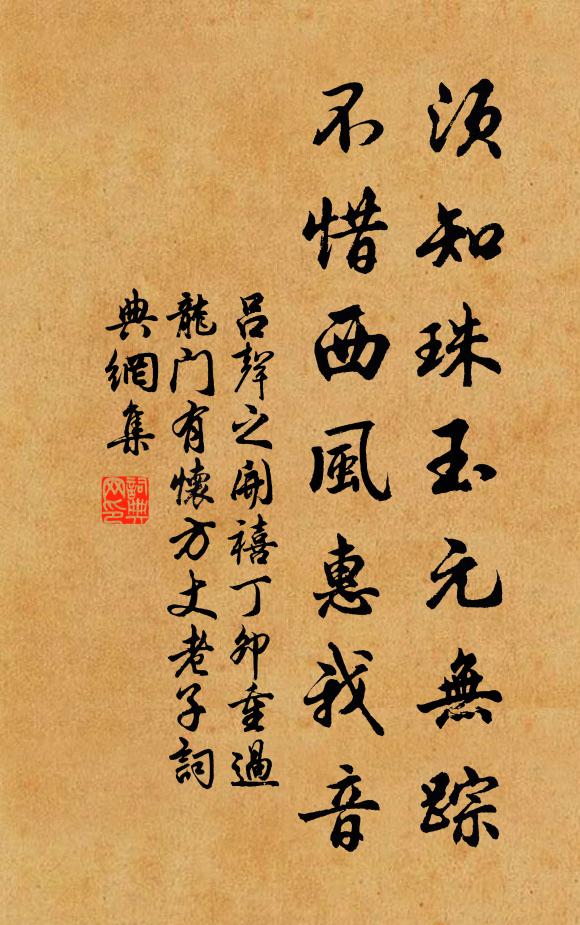 須知珠玉元無踪
不惜西風惠我音
吕聲之開禧丁卯重過
龍门有懷方丈老子詞
典網集
詞典
网印